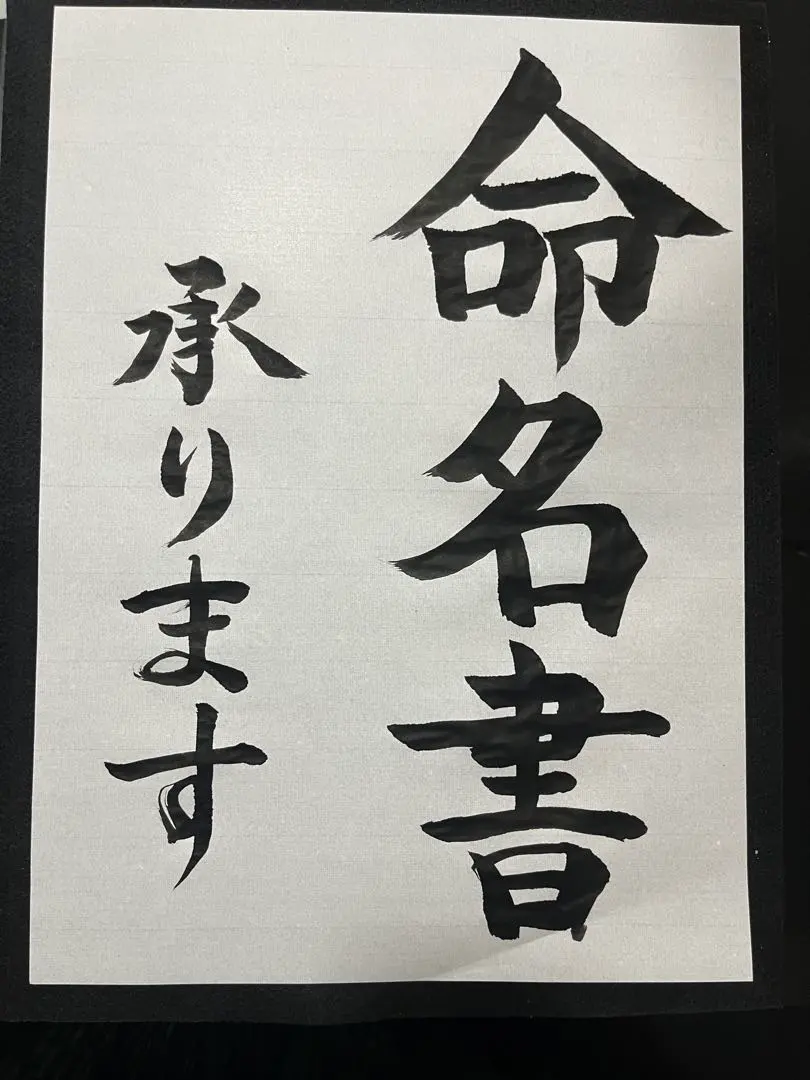 命名書
承ります